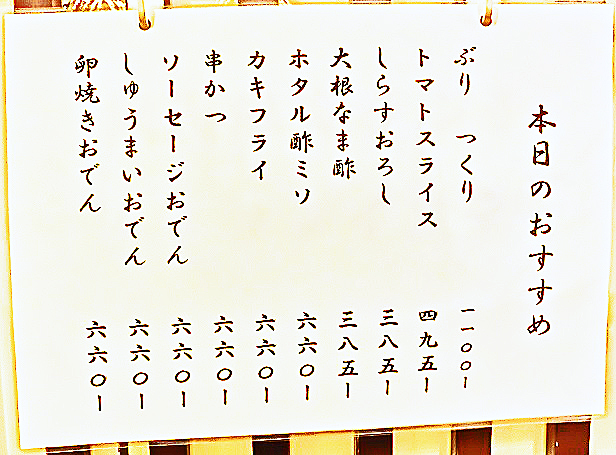 本日のおすすめ
ぶり つくり 一一〇〇ー
トマトスライス 四九五ー
しらすおろし 三八五ー
大根なま酢 三八五ー
ホタル酢ミソ 六六〇ー
カキフライ 六六〇ー
串かつ 六六〇ー
ソーセージおでん 六六〇ー
しゅうまいおでん 六六〇ー
卵焼きおでん 六六〇ー